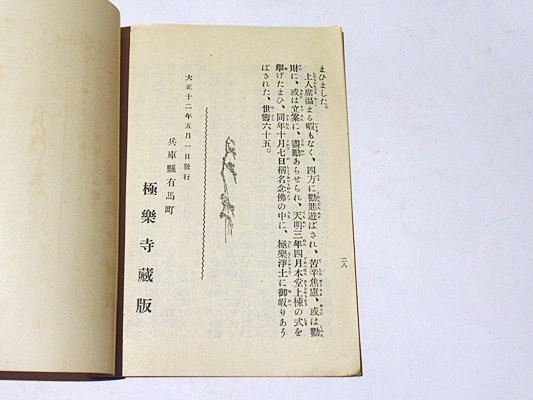 まひました。
上人席温まる暇もなく、四方に勸進遊ばされ、苦辛焦慮、或は勸
財に、或は立案に、盡勤あらせられ、天明三年四月本堂上棟の式を
擧げたまひ、同年十月七日稱名念佛の中に、極樂淨土に御歸りあう
ばされた、世壽六十五。
二八
大正十二年五月一日發行
兵庫縣有馬町
極樂寺藏版